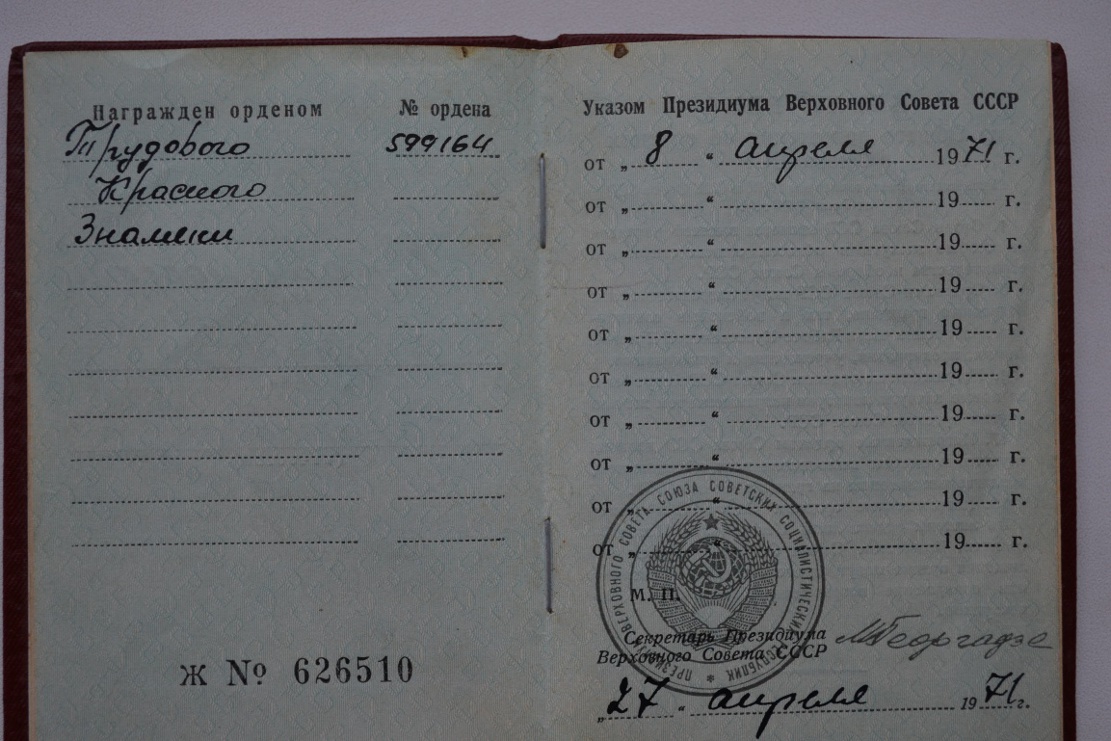 Награжден орденом № ордена
Трудового 599164
Красного
Знамени
Ж № 626510
Указом Президиума Верховного Совета СССР
от „ 8 “ апреля 1971 г.
от „ “ 19 г.
от „ “ 19 г.
от „ “ 19 г.
от „ “ 19 г.
от „ “ 19 г.
от „ “ 19 г.
от „ “ 19 г.
от „ “ 19 г.
от „ “ 19 г.
ПРЕЗИДИУМ ВЕРХОВНОГО СОВЕТА СОЮЗА СОВЕТСКИХ СОЦИАЛИСТИЧЕСКИХ РЕСПУБЛИК
М. П.
Секретарь Президиума
Верховного Совета СССР
М Георгадзе
„27 “ апреля 1971 г.